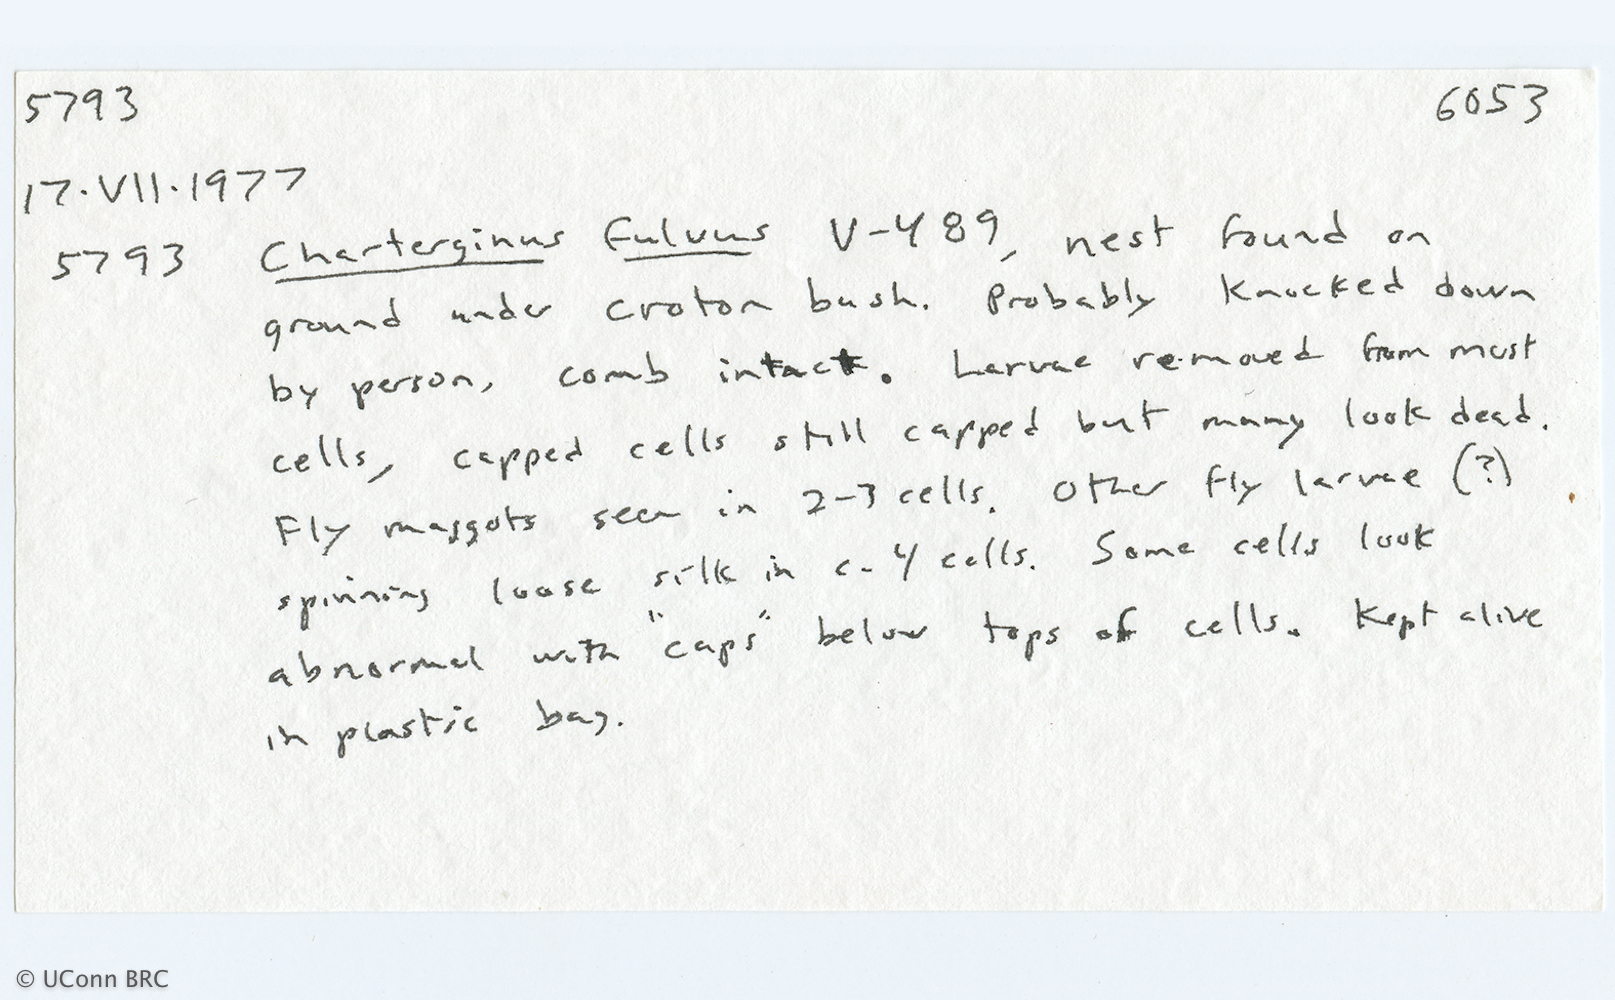 5793 6053
17.VII.1977
5793 Charterginus fulvus V-489, nest found on
ground under croton bush. Probably knocked down
by person, comb intact. Larvae removed from most
cells, capped cells still capped but many look dead.
Fly maggots seen in 2-3 cells. Other fly larvae (?)
spinning loose silk in c. 4 cells. Some cells look
abnormal with "caps" below tops of cells. Kept alive
in plastic bag.
© UConn BRC